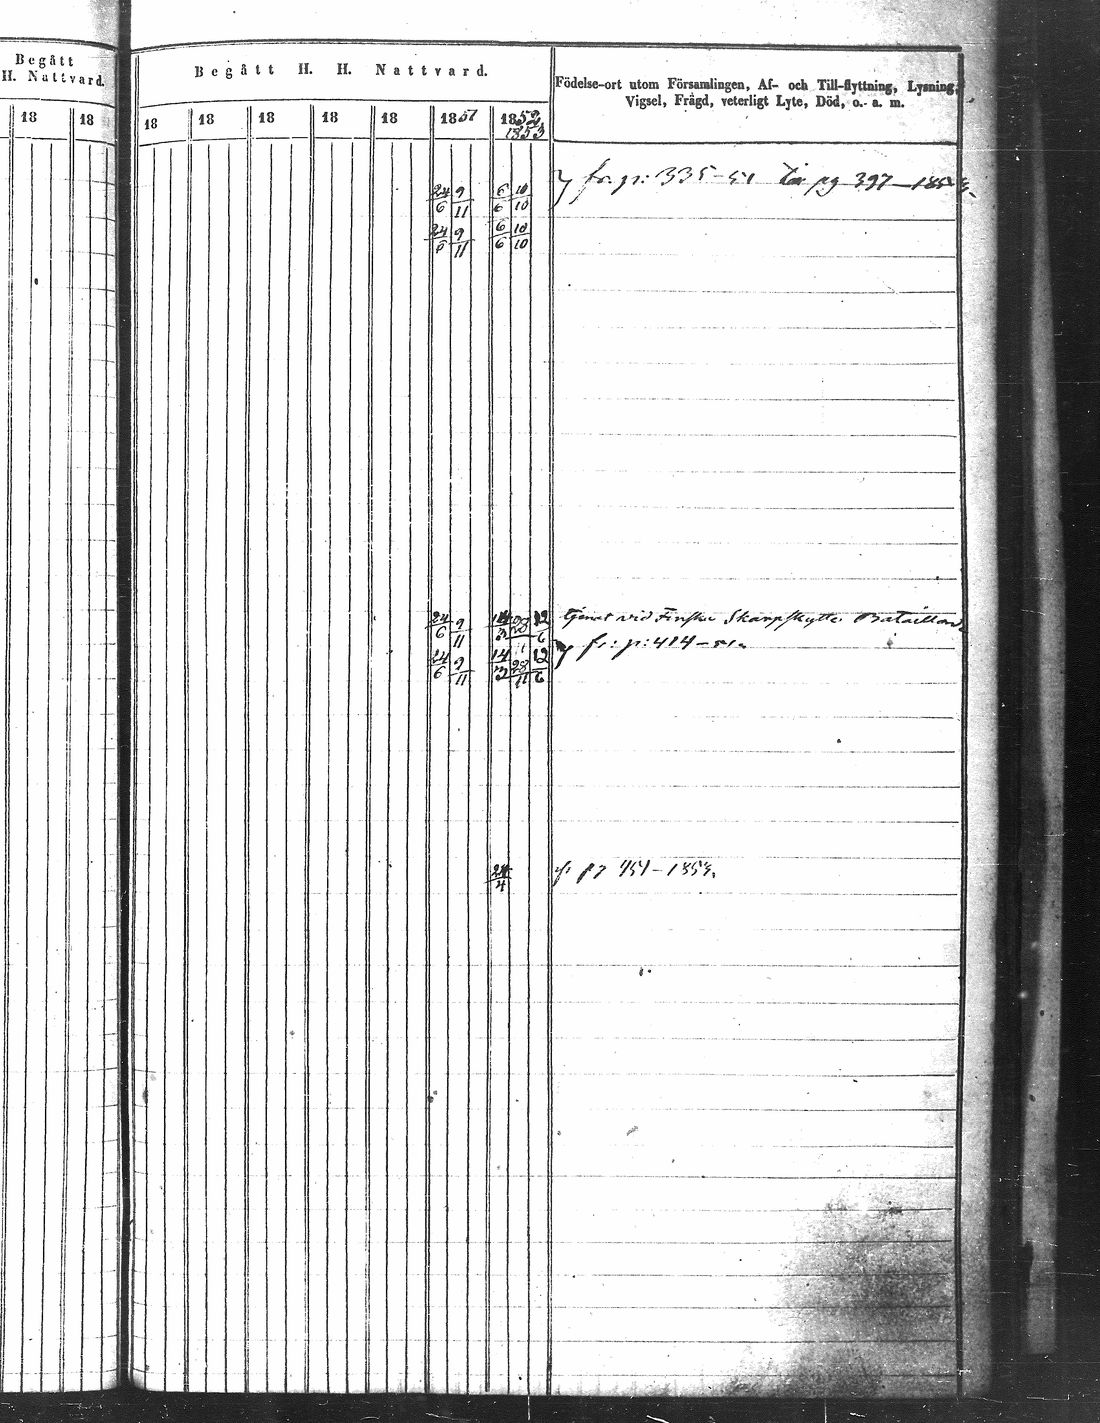 Begått
H. Nattvard.
18 18
Begått H. H. Nattvard.
18 18 18 18 18 1851 1852
1853
Födelse-ort utom Församlingen, Af- och Till-flyttning, Lysning,
Vigsel, Frägd, veterligt Lyte, Död, o. a. m.
24/6 9/11 6/6 10/10 fr. p: 335-51 pg 397-185
24/6 9/11 6/6 10/10
24/6 9/11 14/3 28/11 12/6 tjenat vid Finska Skarpskytte Bataillon
24/6 9/11 14/3 28/11 12/6 fr: p: 414-51.
24/4 451-1853.